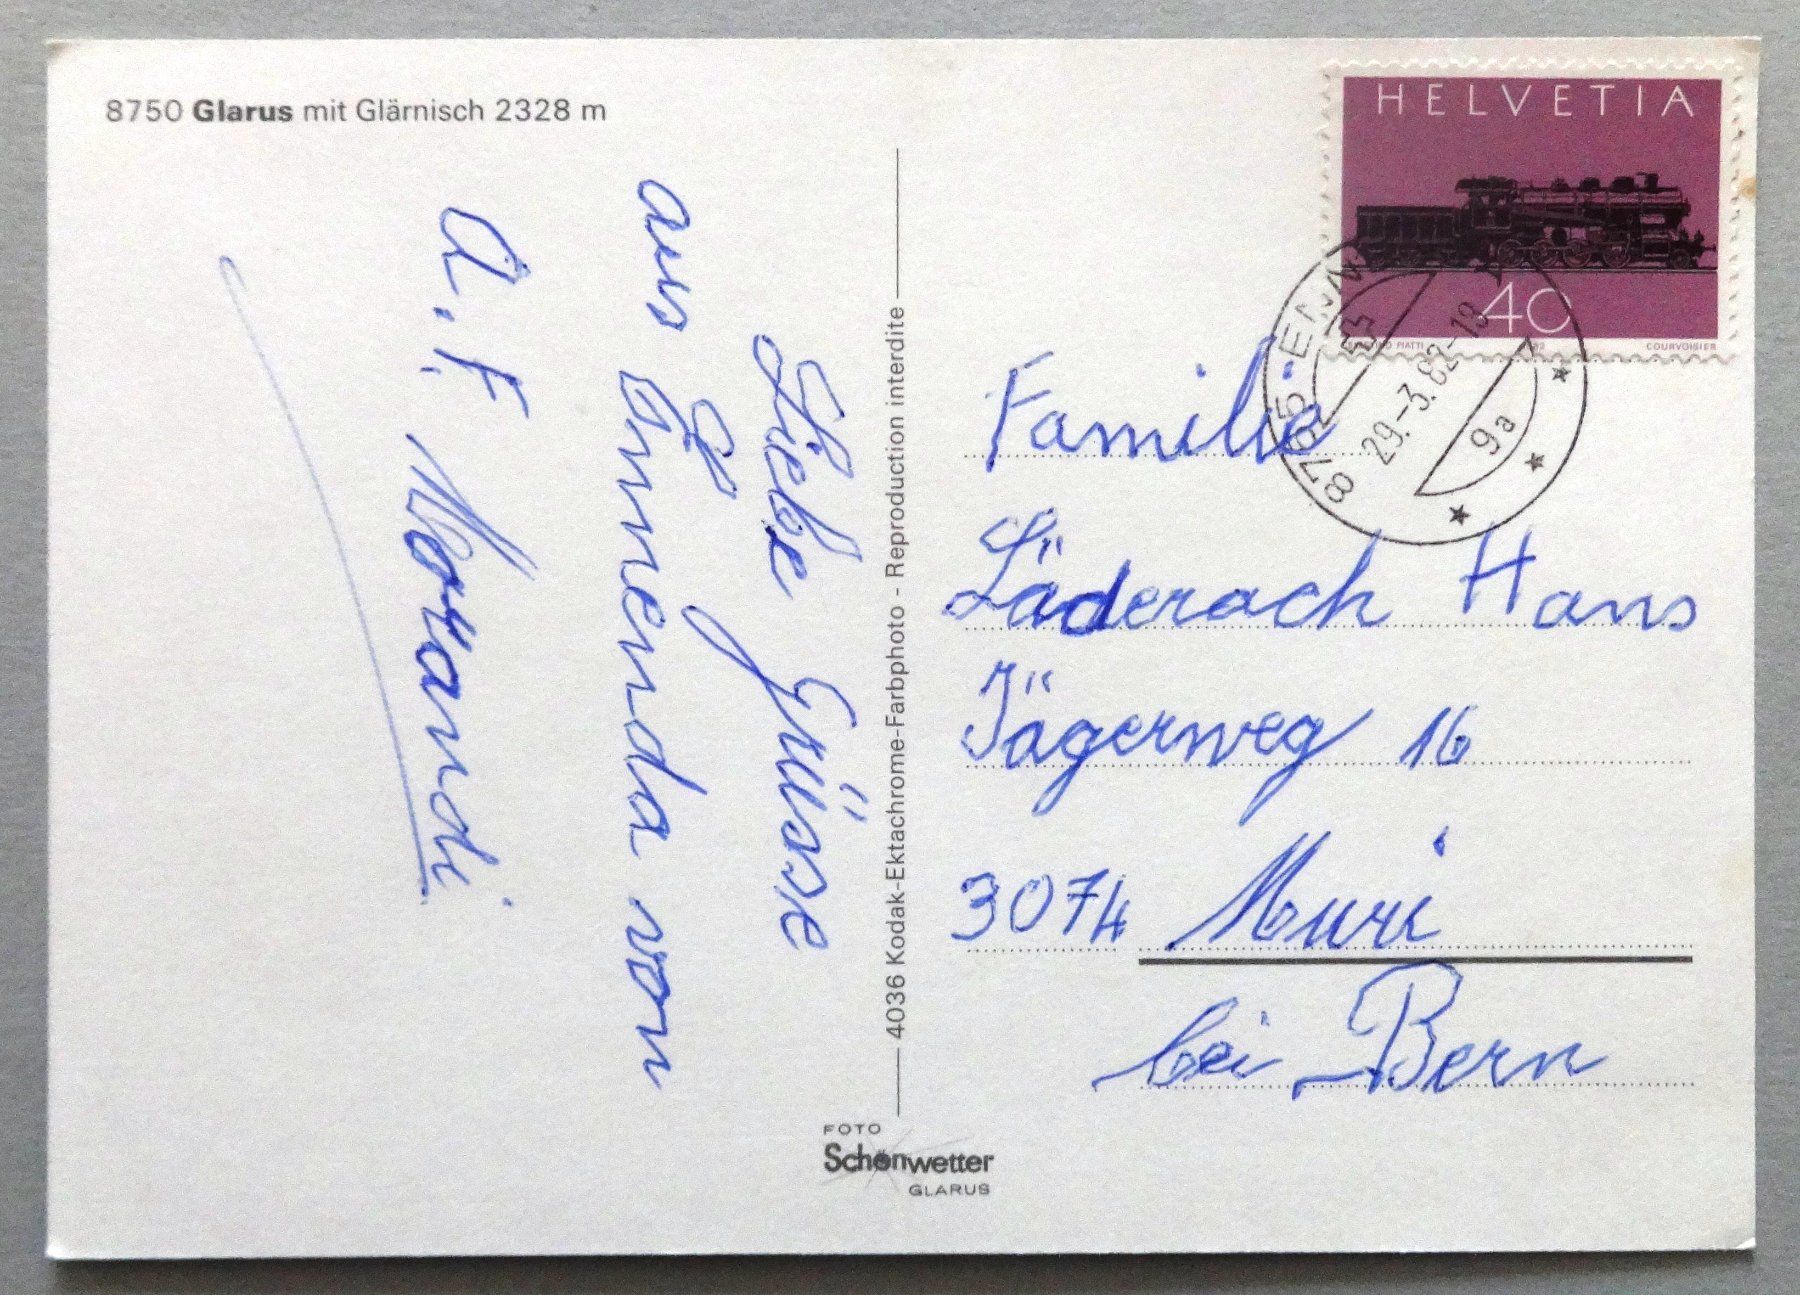 8750 Glarus mit Glärnisch 2328 m
Liebe Grüsse
aus Ennenda von
A. F. Morandi
4036 Kodak-Ektachrome-Farbphoto - Reproduction interdite
FOTO
Schönwetter
GLARUS
HELVETIA
40
PIATTI
COURVOISIER
8755 ENN
29.-3.82-18
9a
Familie
Läderach Hans
Jägerweg 16
3074 Muri
bei Bern